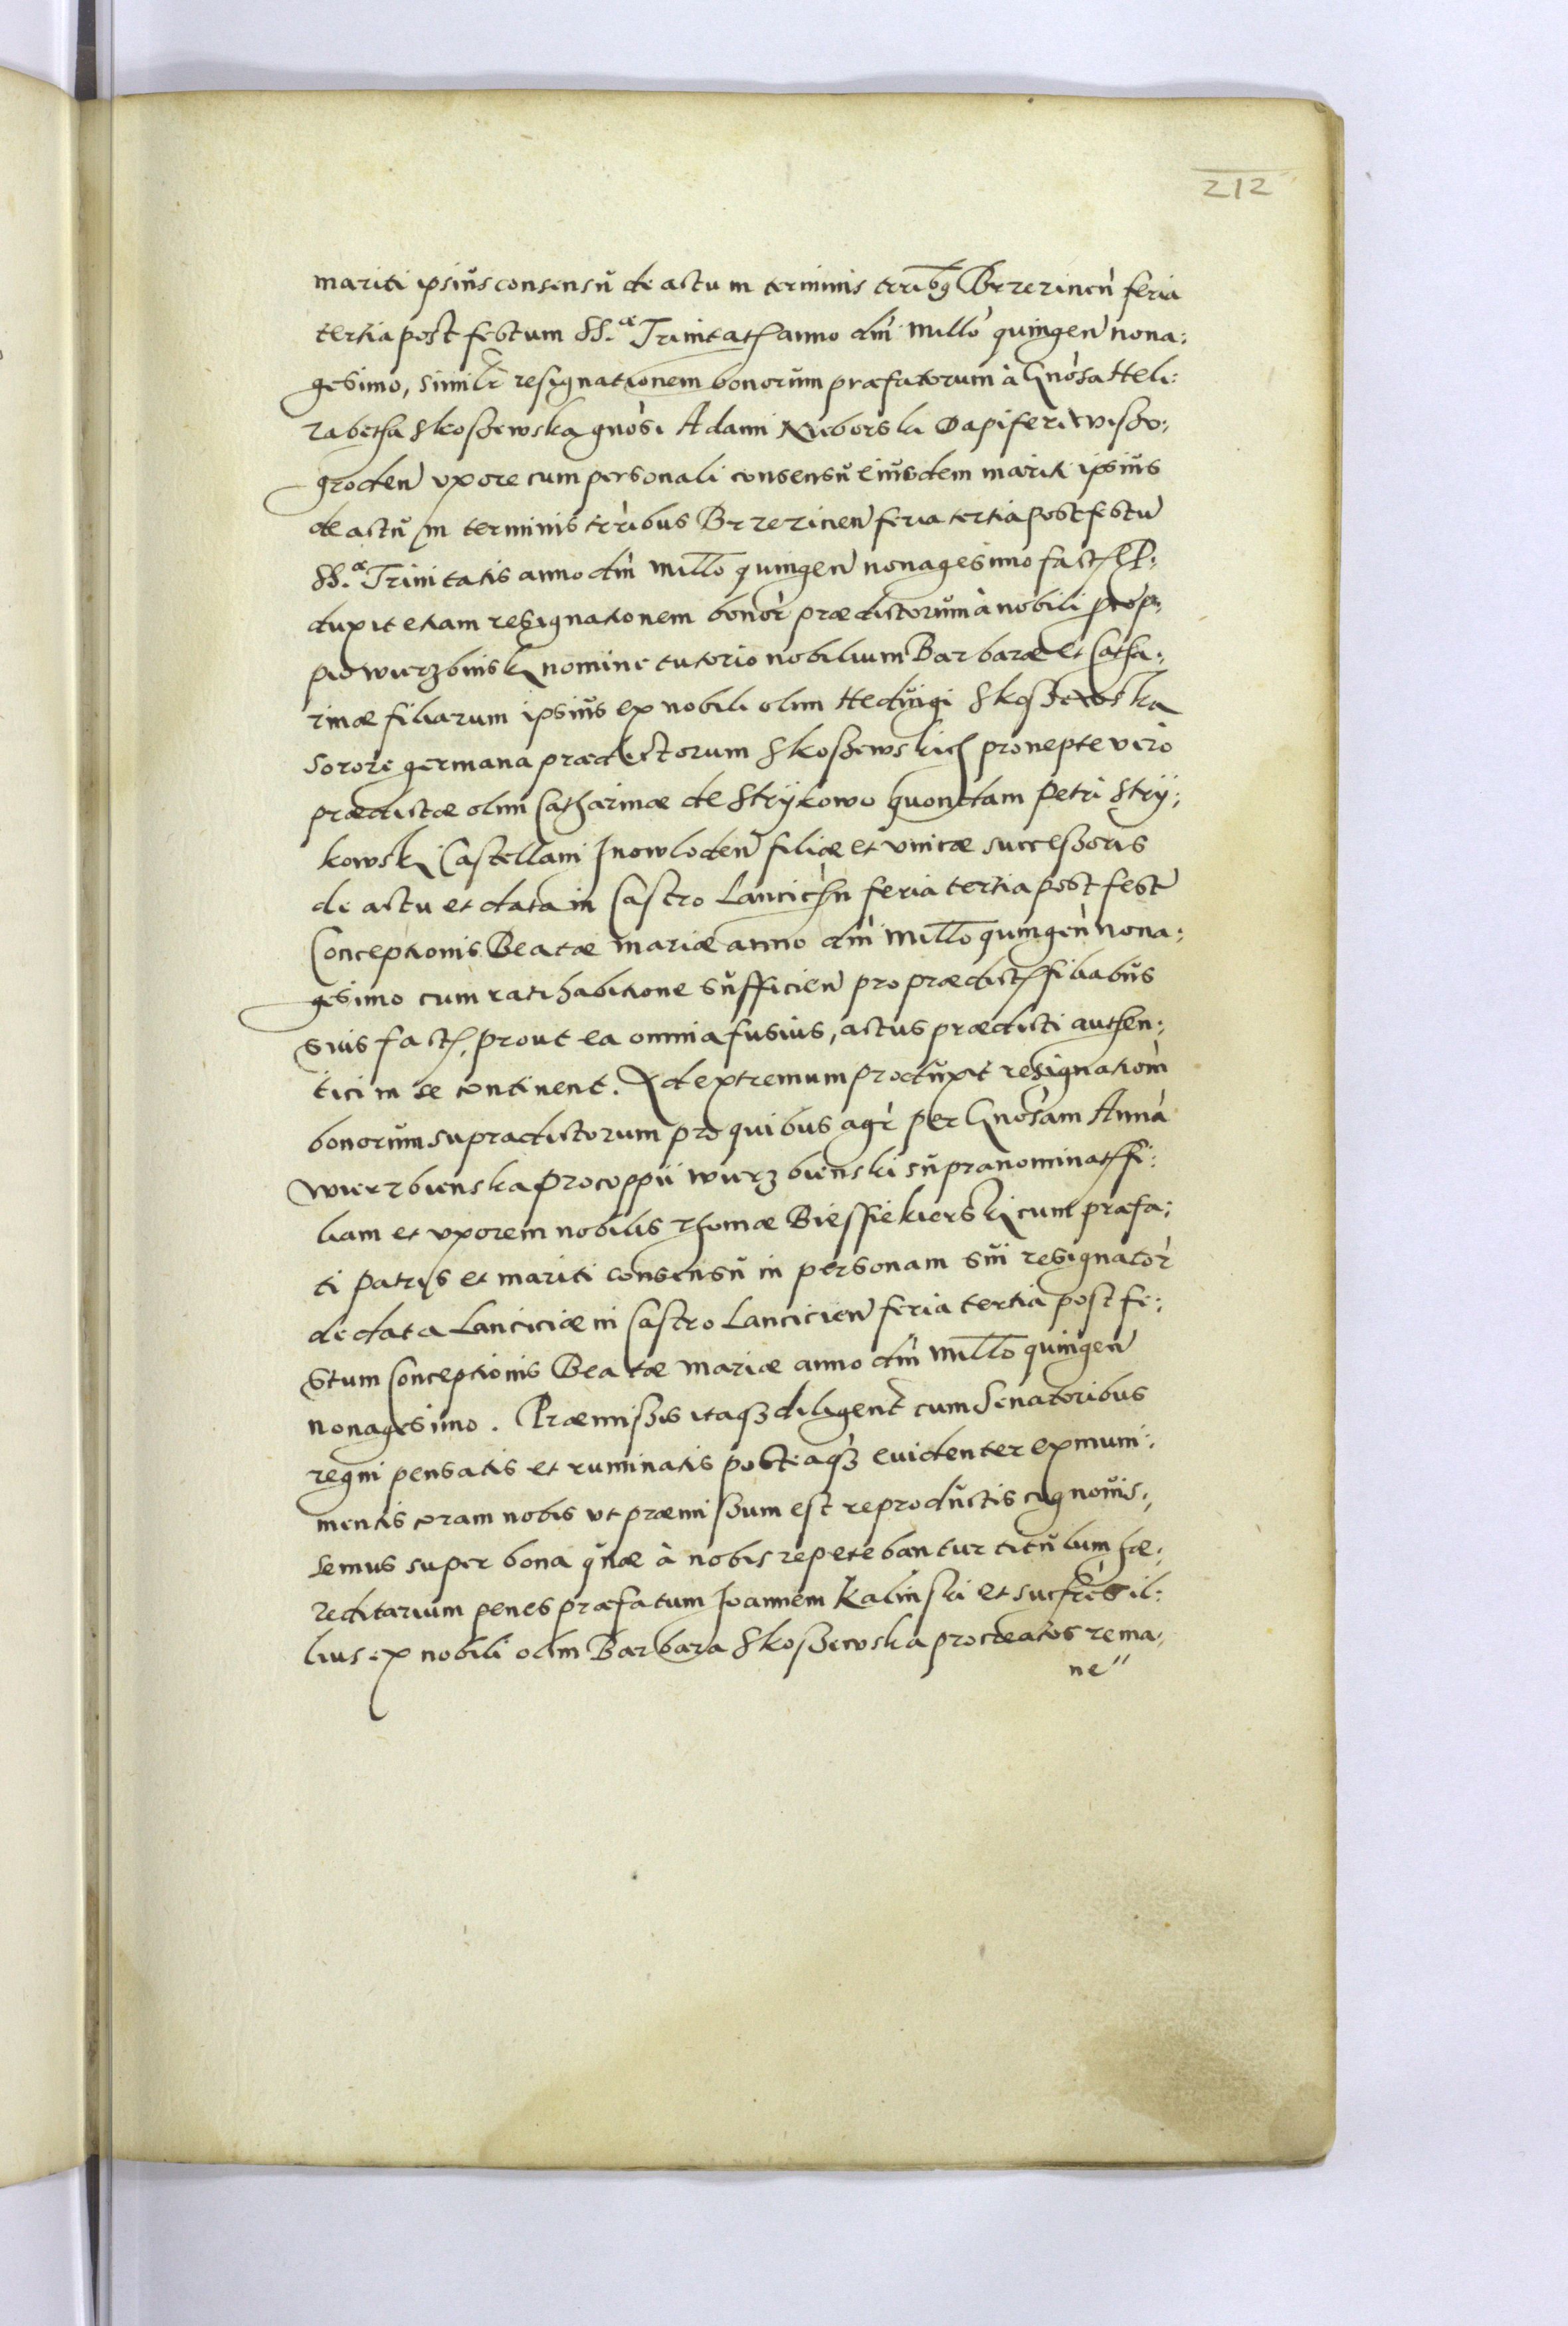 212
mariti ipsius consensu de actu in terminis trribq Brzezinen feria
tertia post festum SS.æ Trinitatis anno dm millo quingen nona:
gesimo, similr resignationem bonorum præfatorum à Gnosa Heli:
zabetha Skoszewska gnosi Adami Nieborski Dapiferi Wiszo:
groden uxore cum personali consensu eiusdem mariti ipsius
de actu in terminis trribus Brzezinen feria tertia post festu
SS.æ Trinitatis anno dm millo quingen nonagesimo fact. P:
duxit etiam resignationem bonor prædictorum à nobili Procop:
pio Wierzbinski nomine tutorio nobilium Barbaræ et Catha:
rinæ filiarum ipsius ex nobili olim Heduigi Skoszewska
sorore germana prædictorum Skoszewskich pronepte vero
prædictæ olim Catharinæ de Strÿkowo quondam Petri Strÿ:
kowski Castellani Inowloden filiæ et unicæ successoris
de actu et data in Castro Lancicien feria tertia post fest
Conceptionis Beatæ Mariæ anno dm millo quingen nona:
gesimo cum ratihabitione sufficien pro prædict filiabus
suis fact, prout ea omnia fusius, actus prædicti authen:
tici in se continent. Ad extremum produxit resignatiom
bonorum supradictorum pro quibus agr per Gnosam Anna
Wierzbienska Procoppii Wierzbienski supranominat fi:
liam et uxorem nobilis Thomæ Biessiekierski cum præfa:
ti patris et mariti consensu in personam sui resignator
de data Lanciciæ in Castro Lancicien feria tertia post fe:
stum Conceptionis Beatæ Mariæ anno dm millo quingen
nonagesimo. Præmissis itaqz diligent cum Senatoribus
regni pensatis et ruminatis posteaqz euidenter ex muni:
mentis coram nobis ut præmissum est reproductis cognouis:
semus super bona quæ à nobis repetebantur titulum hæ:
reditarium penes præfatum Ioannem Kalinski et sucsres il:
lius ex nobili olim Barbara Skoszewska procreatos rema:
ne"